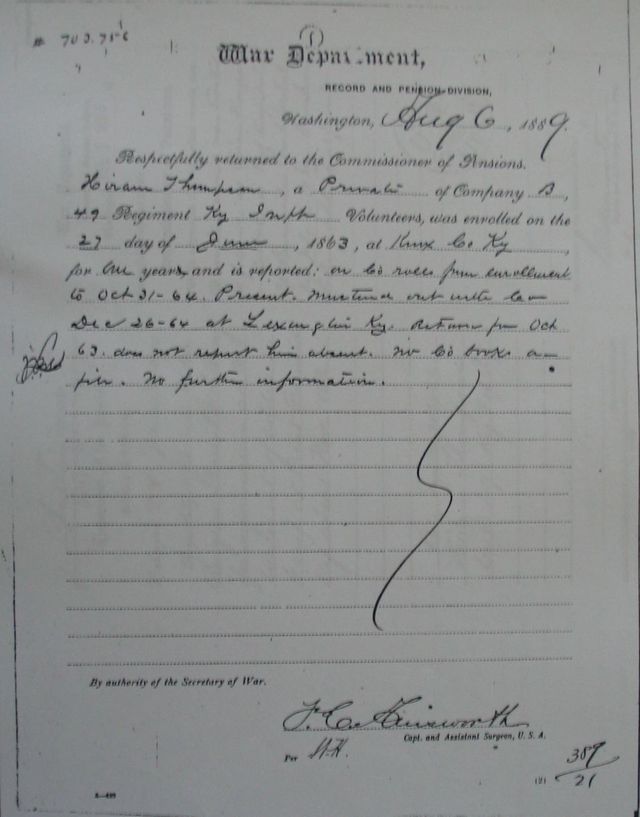 # 703.756
(1)
War Department,
RECORD AND PENSION DIVISION,
Washington, Aug 6, 1889.
Respectfully returned to the Commissioner of Pensions.
Hiram Thompson, a Private of Company B,
49 Regiment Ky Infty Volunteers, was enrolled on the
27 day of June, 1863, at Knox Co Ky,
for one years, and is reported: on Co rolls from enrollment
to Oct 31-64. Present. Mustered out with Co
Dec 26-64 at Lexington Ky. Return for Oct
63. does not report him absent. No Co books on
file. No further information.
By authority of the Secretary of War.
F.C. Ainsworth
Capt. and Assistant Surgeon, U. S. A.
Per
(2) 389
21